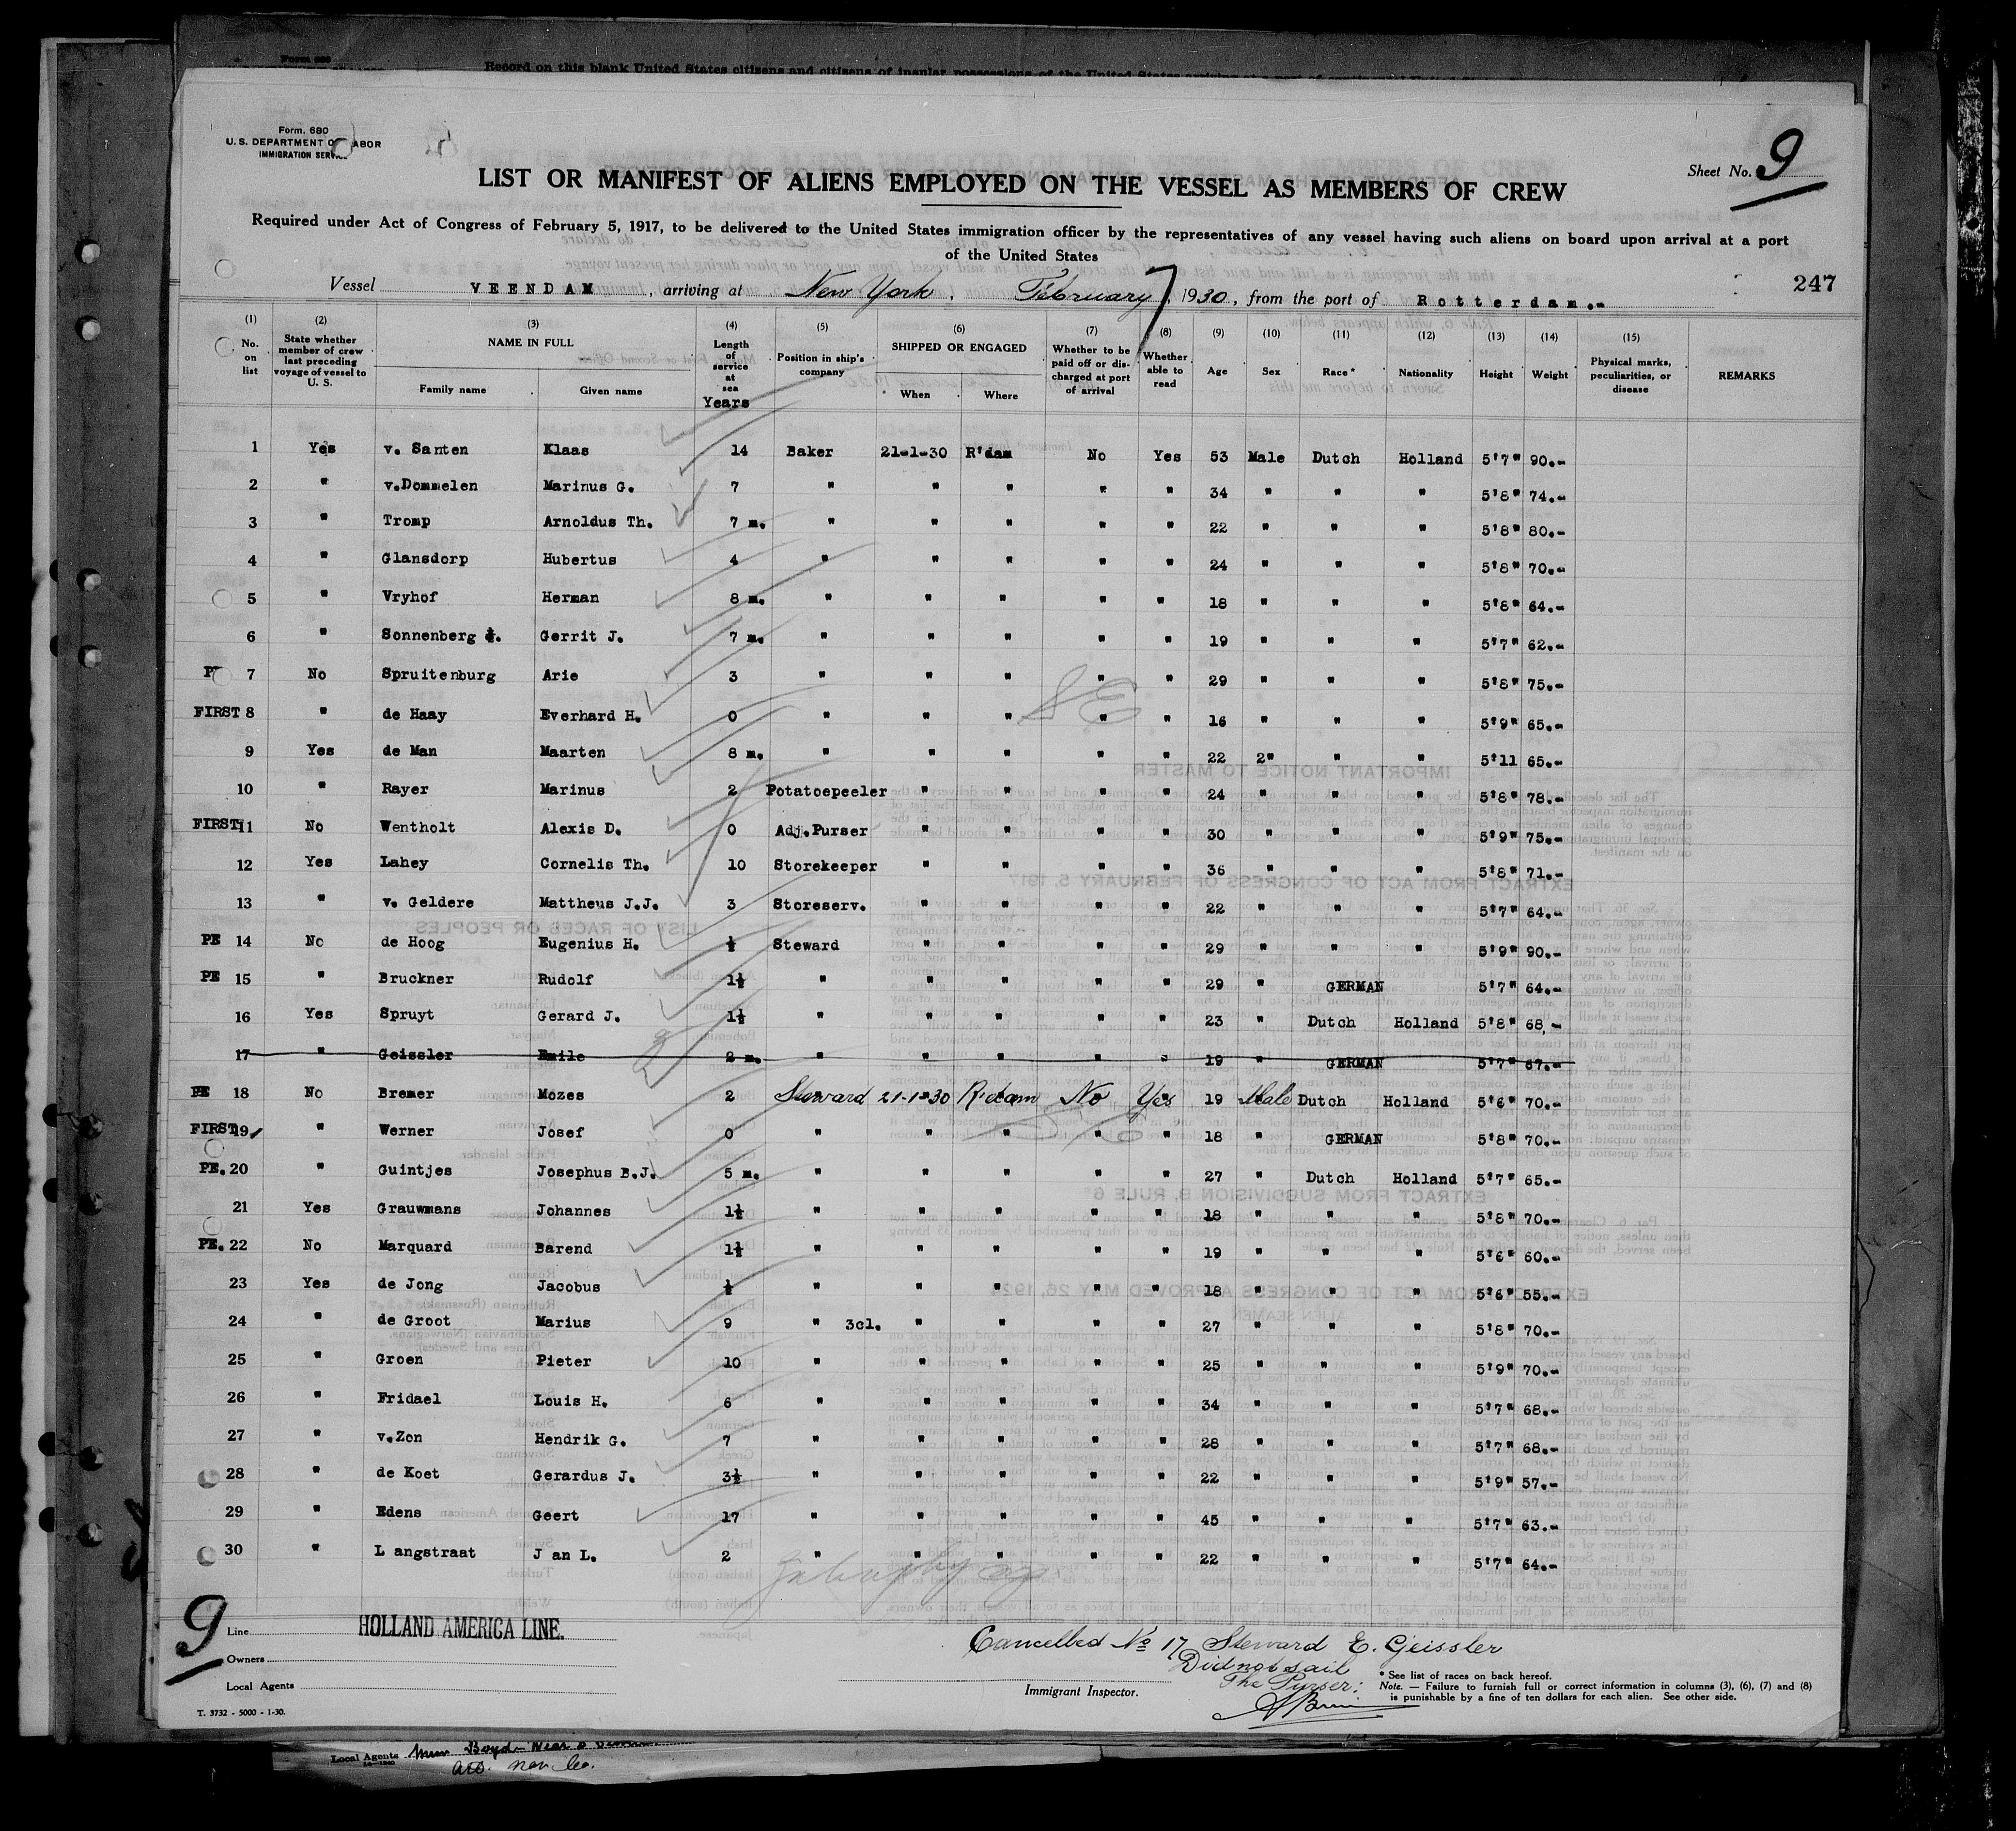 Form. 680
U. S. DEPARTMENT OF LABOR
IMMIGRATION SERVICE
Sheet No. 9
LIST OR MANIFEST OF ALIENS EMPLOYED ON THE VESSEL AS MEMBERS OF CREW
Required under Act of Congress of February 5, 1917, to be delivered to the United States immigration officer by the representatives of any vessel having such aliens on board upon arrival at a port
of the United States
247
Vessel VEENDAM, arriving at New York, February 7, 1930, from the port of Rotterdam.-
(1) (2) (3) (4) (5) (6) (7) (8) (9) (10) (11) (12) (13) (14) (15)
No. on list State whether member of crew last preceding voyage of vessel to U. S. NAME IN FULL Family name Given name Length of service at sea Years Position in ship's company SHIPPED OR ENGAGED When Where Whether to be paid off or discharged at port of arrival Whether able to read Age Sex Race* Nationality Height Weight Physical marks, peculiarities, or disease REMARKS
1 Yes v. Santen Klaas 14 Baker 21-1-30 R'dam No Yes 53 Male Dutch Holland 5'7" 90.-
2 " v.Dommelen Marinus G. 7 " " " " " 34 " " " 5'8" 74.-
3 " Tromp Arnoldus Th. 7 m. " " " " " 22 " " " 5'8" 80.-
4 " Glansdorp Hubertus 4 " " " " " 24 " " " 5'8" 70.-
5 " Vryhof Herman 8 m. " " " " " 18 " " " 5'8" 64.-
6 " Sonnenberg Gerrit J. 7 m. " " " " " 19 " " " 5'7" 62.-
7 No Spruitenburg Arie 3 " " " " " 29 " " " 5'8" 75.-
FIRST 8 " de Haay Everhard H. 0 " " " " " 16 " " " 5'9" 65.-
9 Yes de Man Maarten 8 m. " " " " " 22 2" " " 5'11 65.-
10 " Rayer Marinus 2 Potatoepeeler " " " " 24 " " " 5'8" 78.-
FIRST 11 No Wentholt Alexis D. 0 Adj.Purser " " " " 30 " " " 5'9" 75.-
12 Yes Lahey Cornelis Th. 10 Storekeeper " " " " 36 " " " 5'8" 71.-
13 " v. Geldere Mattheus J.J. 3 Storeserv. " " " " 22 " " " 5'7" 64.-
PE 14 No de Hoog Eugenius H. ½ Steward " " " " 29 " " " 5'9" 90.-
PE 15 " Bruckner Rudolf 1½ " " " " " 29 " GERMAN 5'7" 64.-
16 Yes Spruyt Gerard J. 1½ " " " " " 23 " Dutch Holland 5'8" 68,-
17 " Geissler Emile 2 m. " " " " " 19 " GERMAN 5'7" 67.-
PE 18 No Bremer Mozes 2 Steward 21-1-30 R'dam No Yes 19 Male Dutch Holland 5'6" 70.-
FIRST 19 " Werner Josef 0 " " " " " 18 " GERMAN 5'8" 70.-
PE. 20 " Guintjes Josephus B.J. 5 m. " " " " " 27 " Dutch Holland 5'7" 65.-
21 Yes Grauwmans Johannes 1½ " " " " " 18 " " " 5'8" 70.-
PE. 22 No Marquard Barend 1½ " " " " " 19 " " " 5'6" 60.-
23 Yes de Jong Jacobus ½ " " " " " 18 " " " 5'6" 55.-
24 " de Groot Marius 9 " 3cl. " " " " 27 " " " 5'8" 70.-
25 " Groen Pieter 10 " " " " " 25 " " " 5'9" 70.-
26 " Fridael Louis H. 6 " " " " " 34 " " " 5'7" 68.-
27 " v.Zon Hendrik G. 7 " " " " " 28 " " " 5'7" 68.-
28 " de Koet Gerardus J. 3½ " " " " " 22 " " " 5'9" 57.-
29 " Edens Geert 17 " " " " " 45 " " " 5'7" 63.-
30 " L angstraat J an L. 2 " " " " " 22 " " " 5'7" 64.-
9
Line HOLLAND AMERICA LINE.
Owners
Local Agents
Cancelled No 17 Steward E. Geissler
Did not sail
The Purser:
Immigrant Inspector.
* See list of races on back hereof.
Note. — Failure to furnish full or correct information in columns (3), (6), (7) and (8)
is punishable by a fine of ten dollars for each alien. See other side.
T. 3732 - 5000 - 1-30.
Local Agents